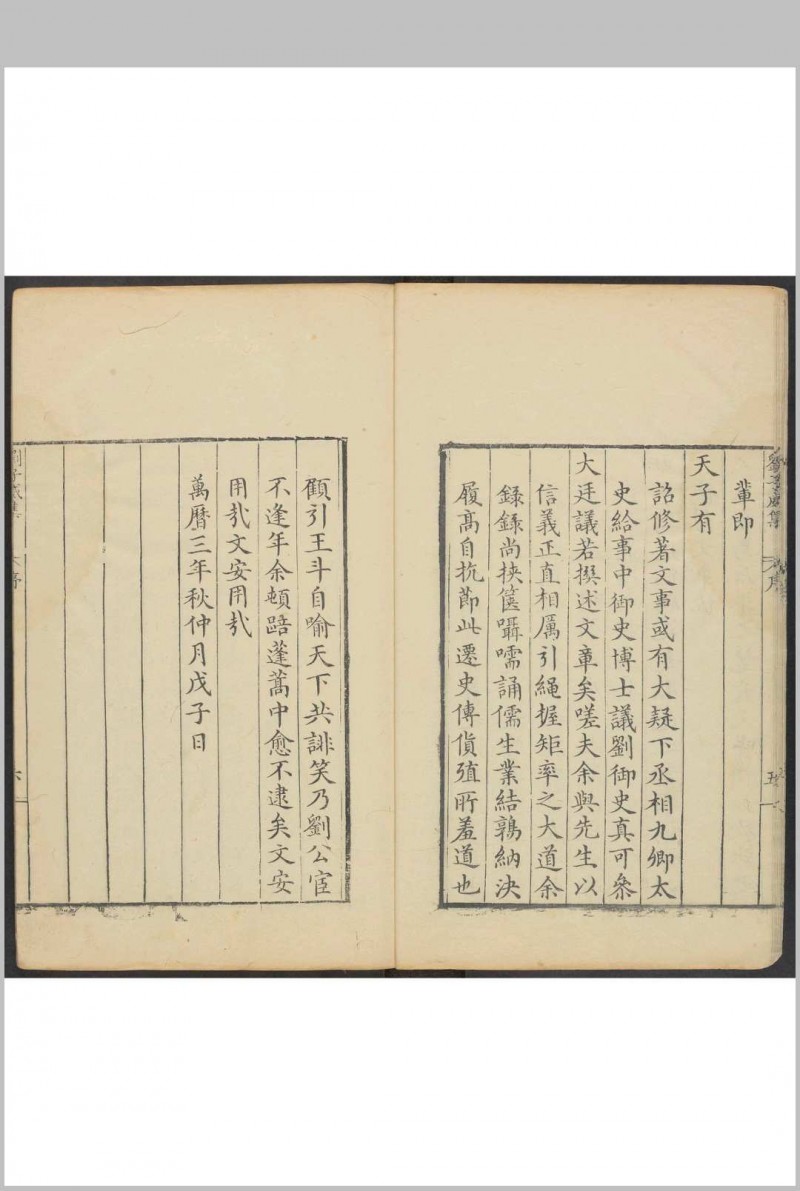 輩即
天子有
詔修著文事或有大疑下丞相九卿太
史給事中御史博士議劉御史真可參
大廷議若撰述文章矣嗟夫余與先生以
信義正直相厲引繩握矩率之大道余
錄錄尚挾篋囁嚅誦儒生業結鶉納決
履高自抗節此遷史傳貨殖所羞道也
顧引王斗自喻天下共誹笑乃劉公宦
不逢年余頓踣蓬蒿中愈不逮矣文安
用㢤文安用㢤
萬曆三年秋仲月戊子日
劉子威集
序
五
六